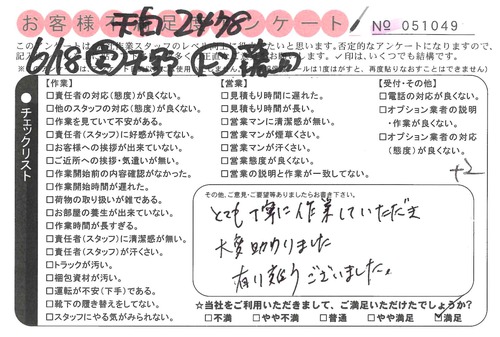 お客様不満足度アンケート
天白2478
№ 051049
6/18
【作業】
□責任者の対応(態度)が良くない。
□他のスタッフの対応(態度)が良くない。
□作業を見ていて不安がある。
□責任者(スタッフ)に好感が持てない。
□お客様への挨拶が出来ていない。
□ご近所への挨拶・気遣いが無い。
□作業開始前の内容確認がなかった。
□作業開始時間が遅れた。
□荷物の取り扱いが雑である。
□お部屋の養生が出来ていない。
□作業時間が長すぎる。
□責任者(スタッフ)に清潔感が無い。
□責任者(スタッフ)が汗くさい。
□トラックが汚い。
□梱包資材が汚い。
□運転が不安(下手)である。
□靴下の履き替えをしてない。
□スタッフにやる気がみられない。
【営業】
□見積もり時間に遅れた。
□見積もり時間が長い。
□営業マンに清潔感が無い。
□営業マンが煙草くさい。
□営業マンが汗くさい。
□営業態度が良くない。
□営業の説明と作業が一致してない。
【受付・その他】
□電話の対応が良くない。
□オプション業者の説明
・作業が良くない。
□オプション業者の対応
(態度)が良くない。
+2
チェックリスト
その他、ご意見・ご要望等ありましたらお書き下さい。
とても丁寧に作業していただき
大変助かりました
有り難うございました。
★当社をご利用いただきまして、ご満足いただけたでしょうか?
□不満 □やや不満 □普通 □やや満足 ☑満足